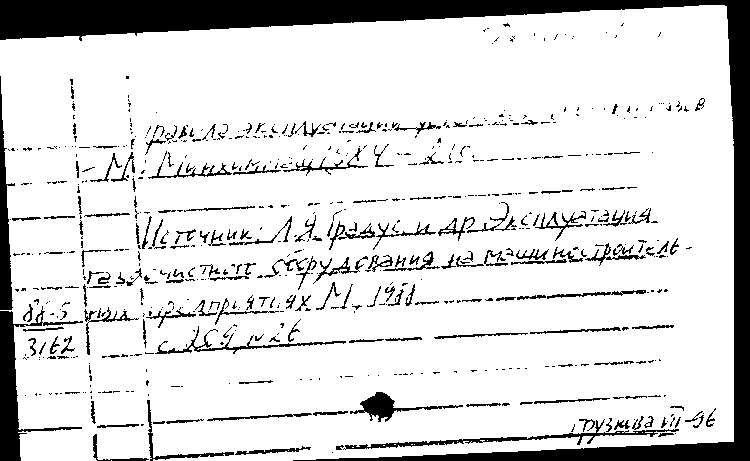 Правила эксплуатации установок газов
– М.: Минхиммаш, 1984 – 21 с.
Источник: Л.Я. Градус и др. Эксплуатация
газоочистного оборудования на машиностроитель-
88-5 ных предприятиях М., 1988
3162 с. 259, № 26
Грузнова VII-96